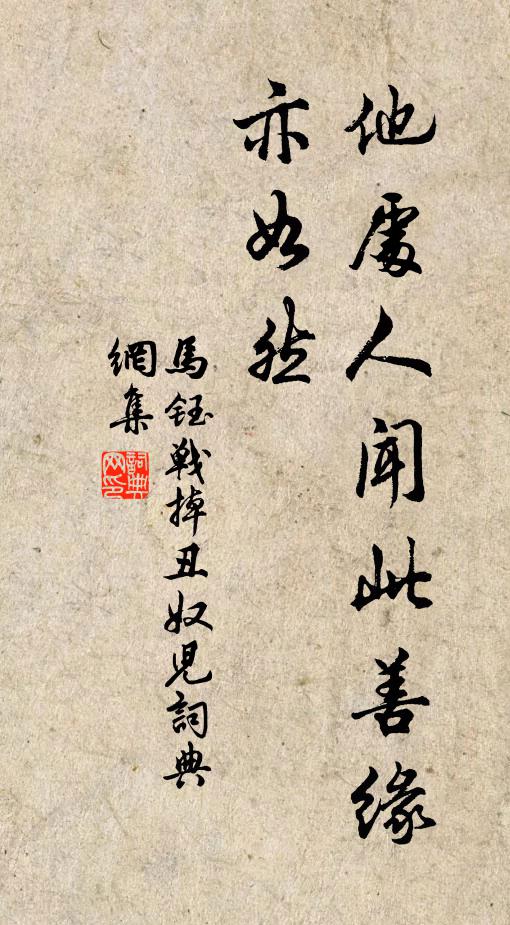 他處人聞此善緣
亦如然
馬鈺戰掉丑奴兒詞典
網集
詞典網印